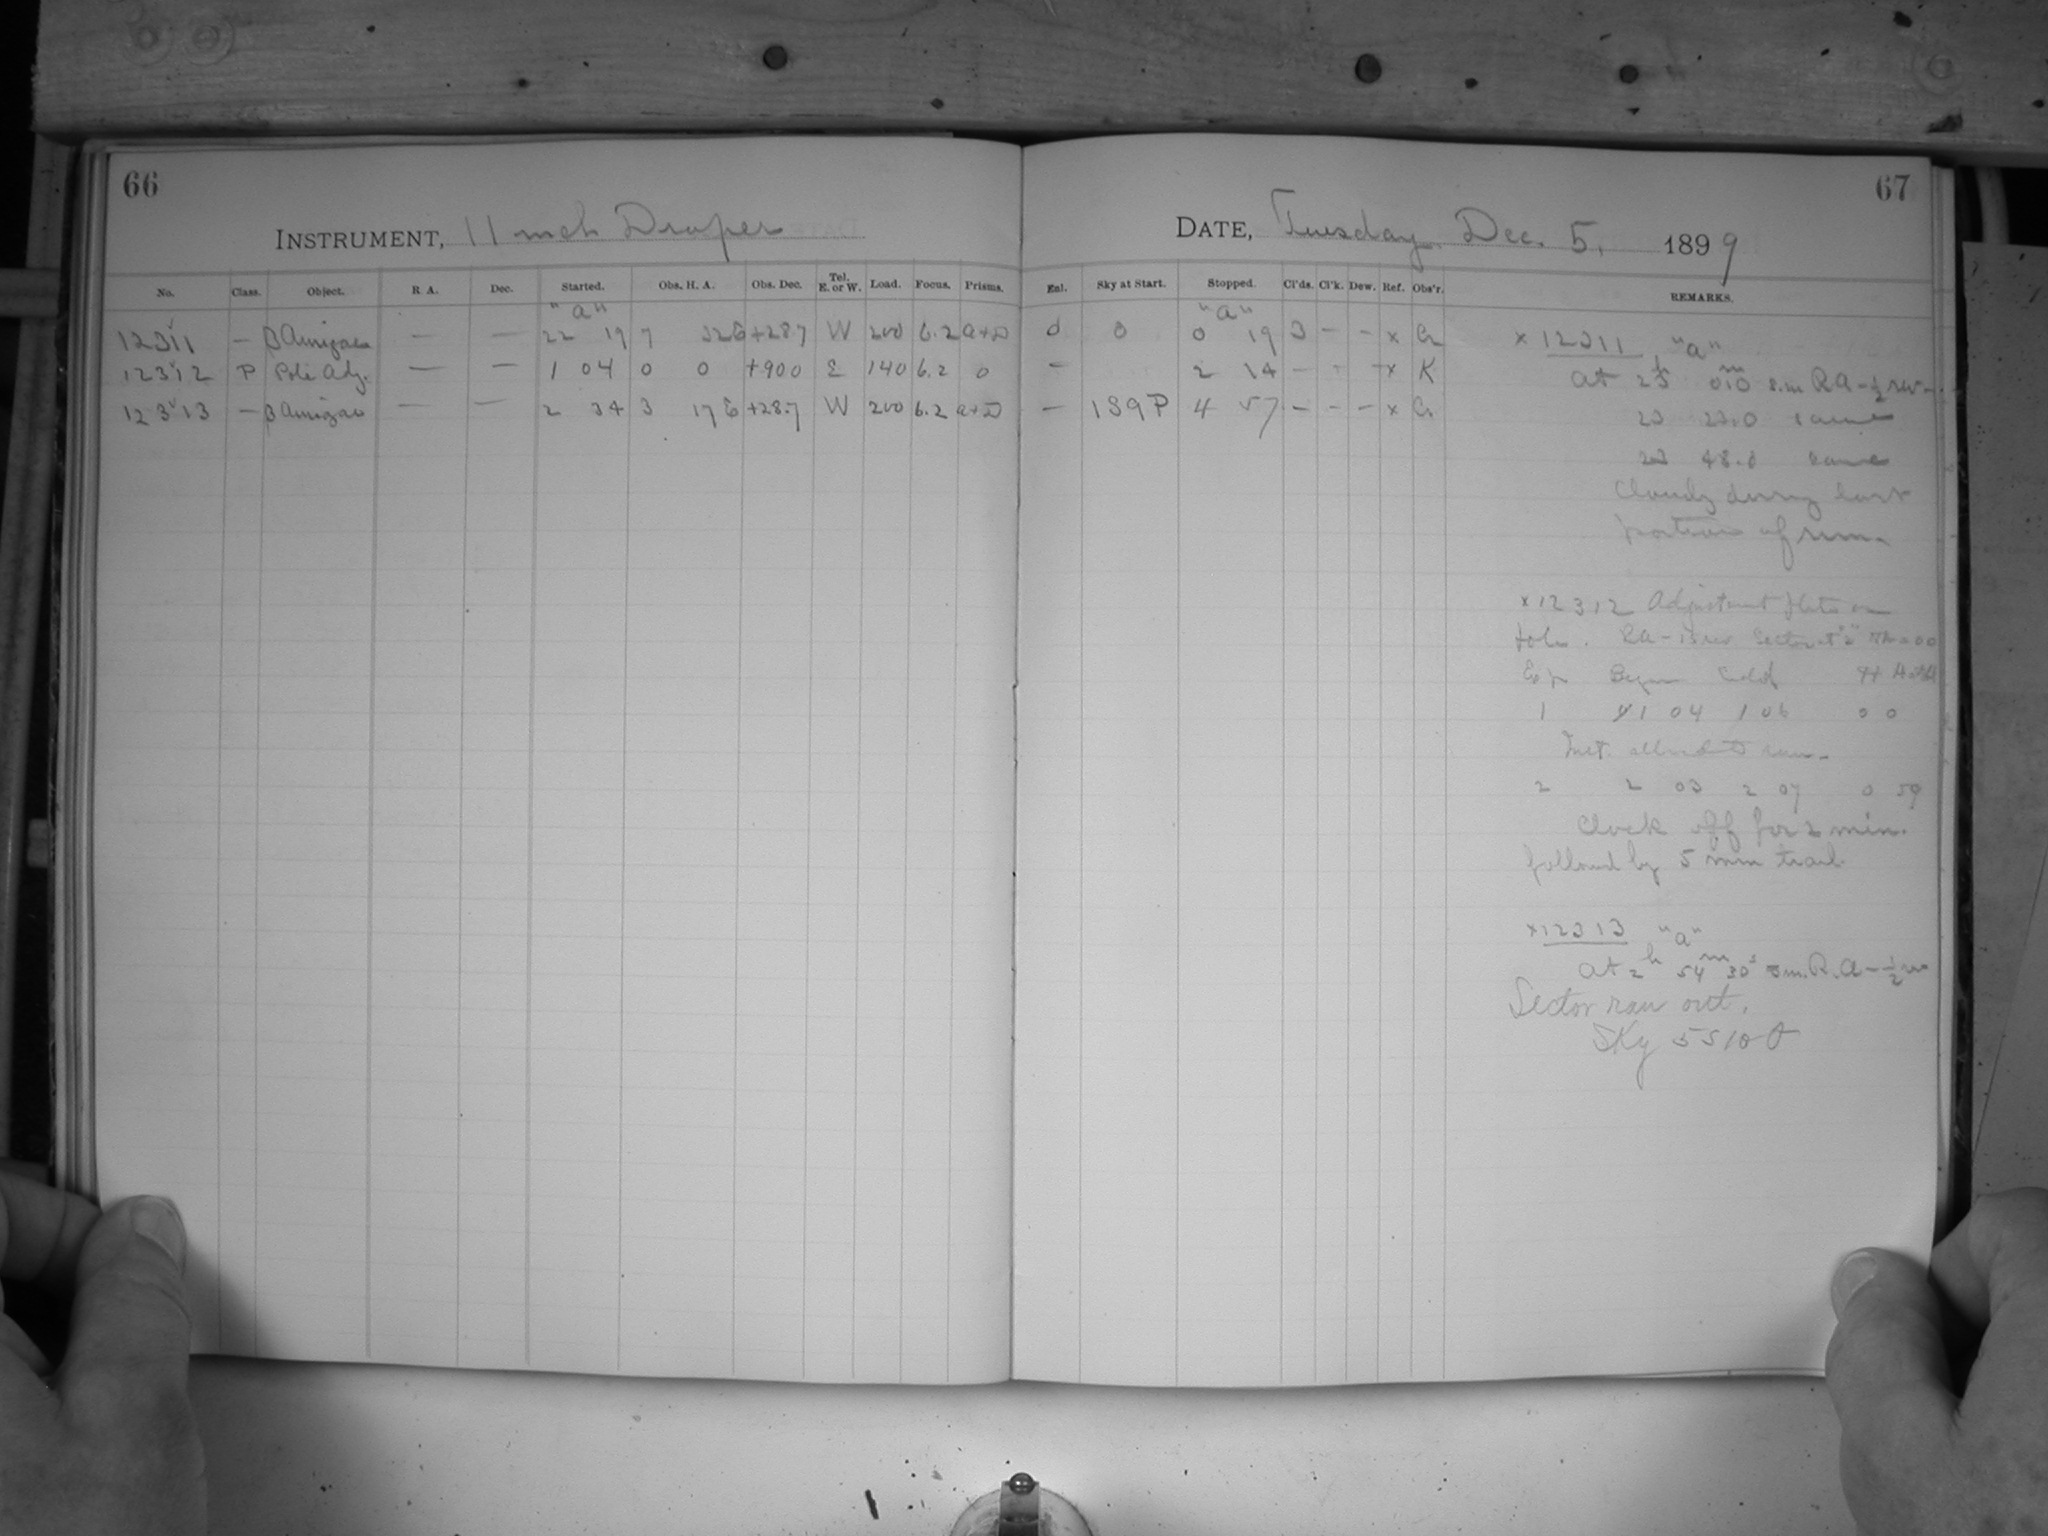 66
INSTRUMENT, 11 inch Draper
No. Class. Object. R A. Dec. Started. Obs. H. A. Obs. Dec. Tel. E. or W. Load. Focus. Prisms.
"a"
12311 — β Aurigae — — 22 19 7 32 E +28.7 W 200 6.2 a+D
12312 P Pole Adj. — — 1 04 0 0 +900 E 140 6.2 0
12313 — β Aurigae — — 2 34 3 17 E +28.7 W 200 6.2 a+D
67
DATE, Tuesday Dec. 5, 1899
Enl. Sky at Start. Stopped. Cl'ds. Cl'k. Dew. Ref. Obs'r. REMARKS.
"a"
0 0 0 19 3 – – x
– 2 14 – – – x K
– 139P 4 57 – – – x
x 12311 "a"
at R.A – ½ rev –
23 23.0 same
23 48.0 same
Cloudy during last
portion of run.
x 12312 Adjustment plate on
Pole.
Exp Began Ended
1 1 04 1 06 0 0
Inst. allowed to run.
2 2 03 2 07 0 59
Clock off for 2 min.
followed by 5 min trail.
x 12313 "a"
at 2h 54m 30s R.A – ½
Sector ran out.
Sky 5510